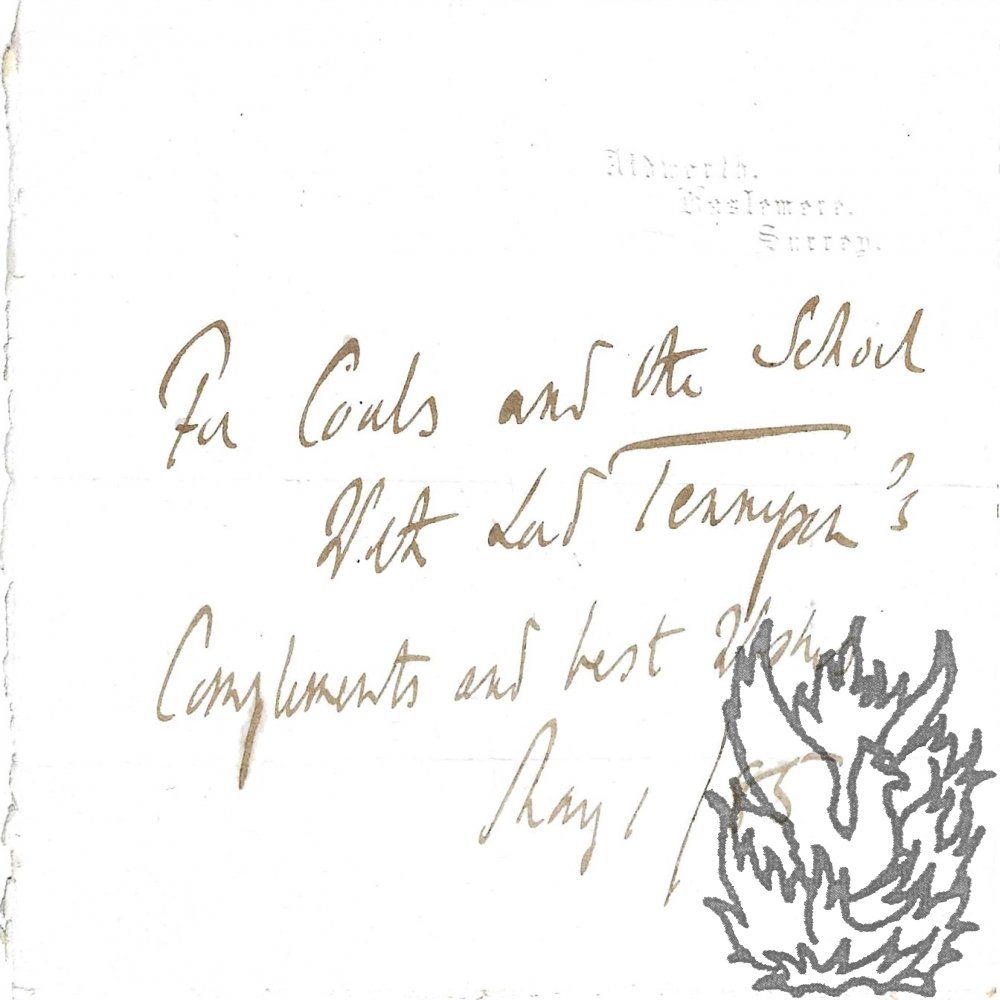 Aldworth.
Haslemere.
Surrey.
For Coals and the School
With Lord Tennyson's
Compliments and best Wishes
May 1 / 85